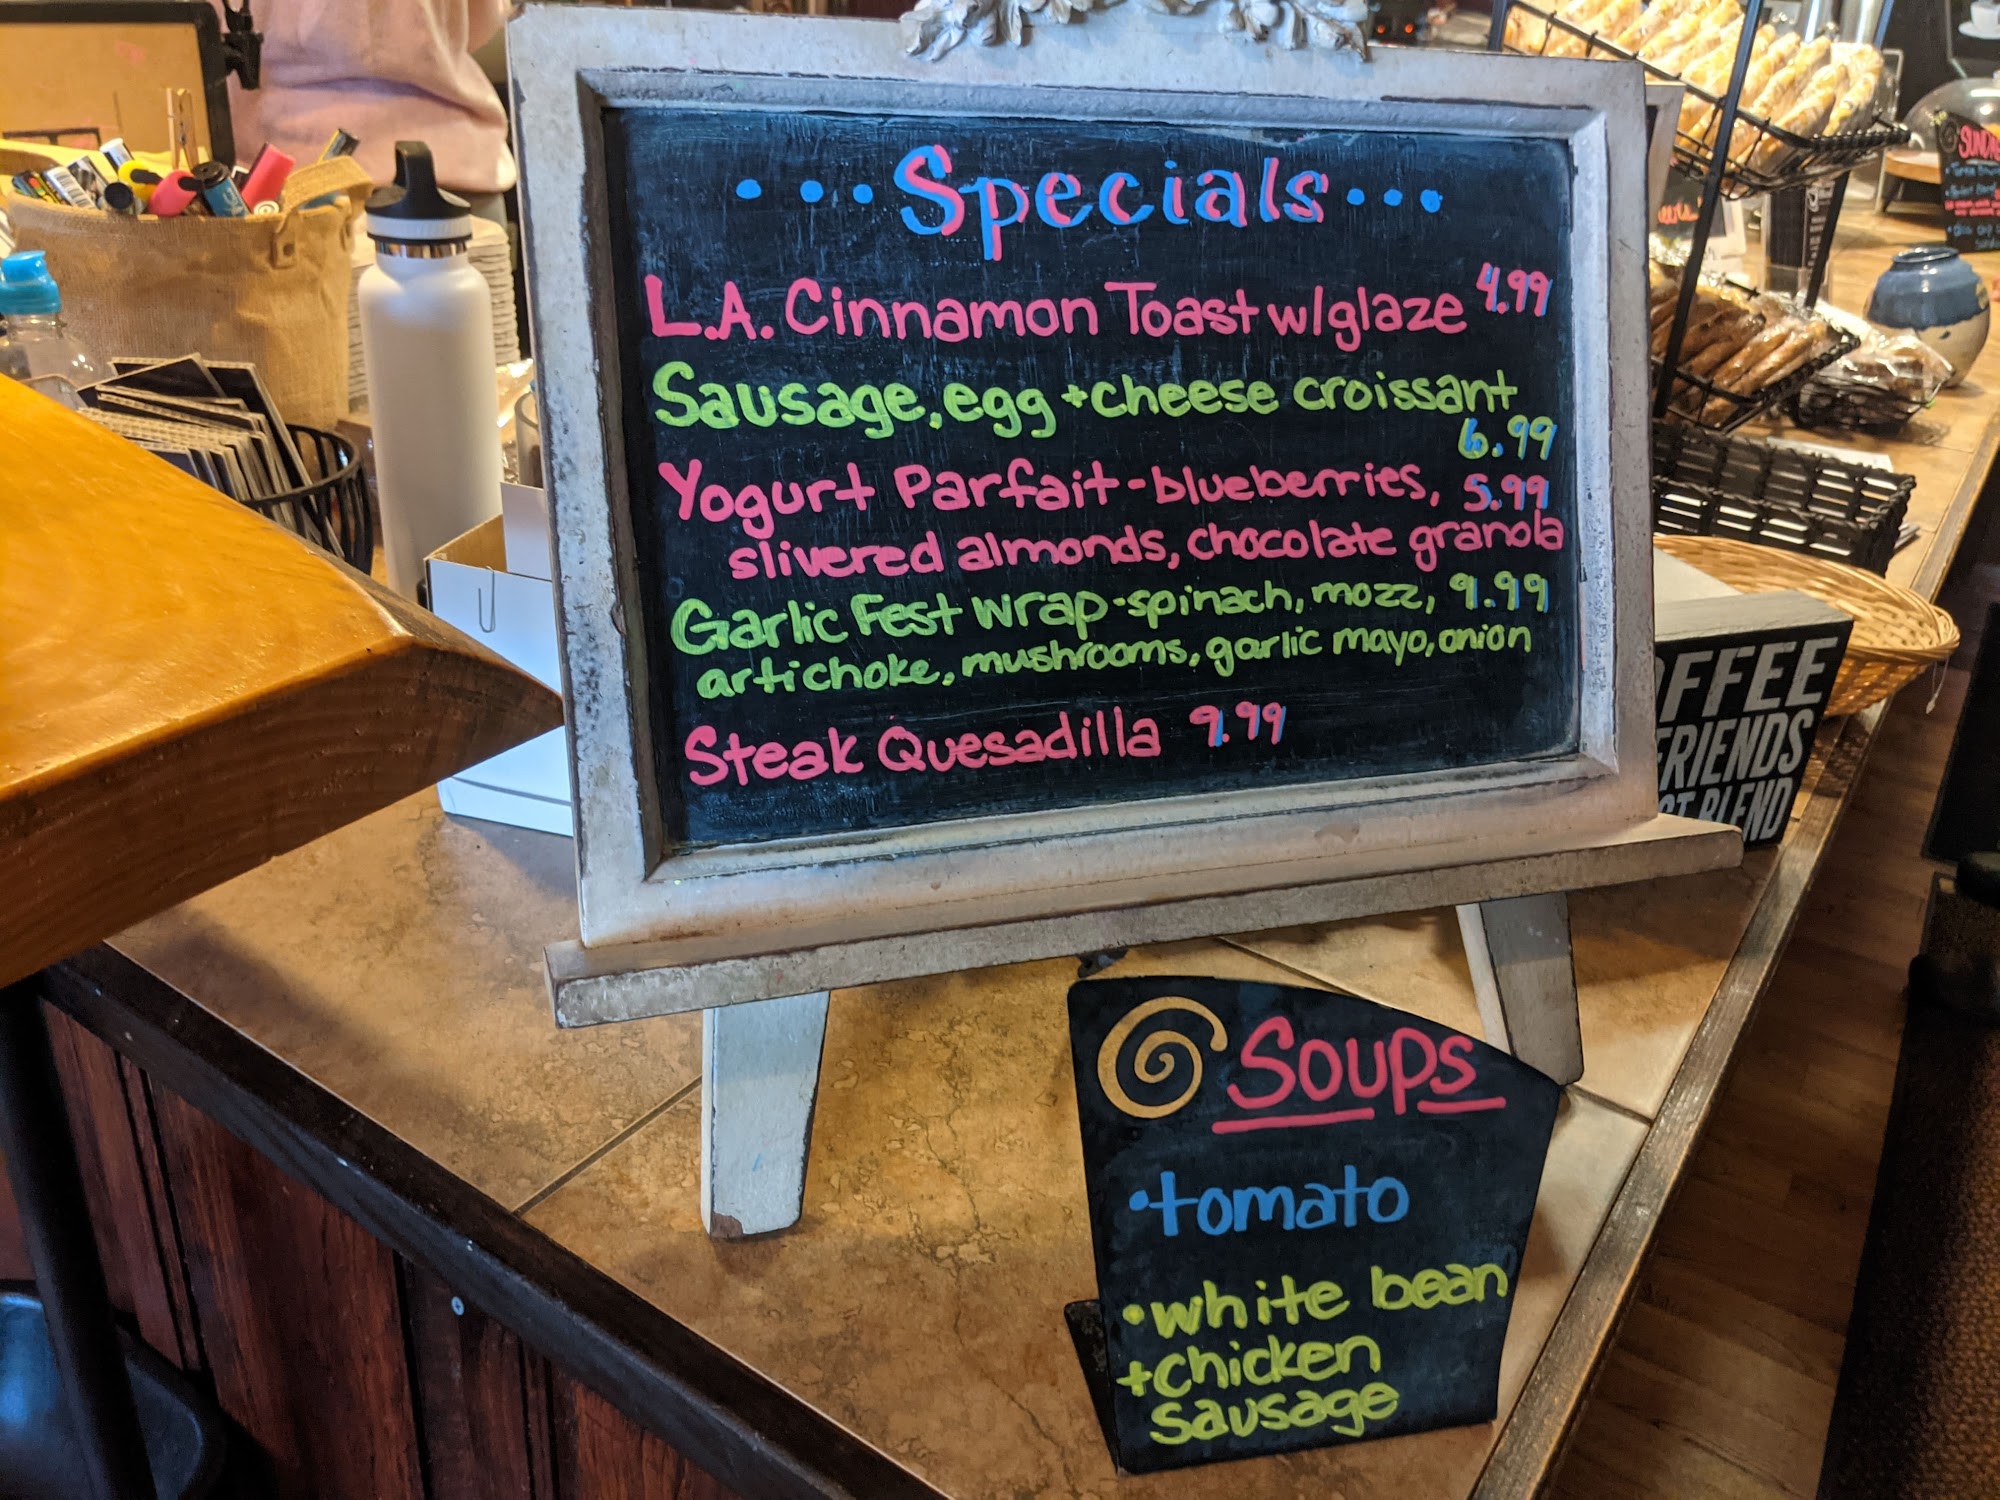 ...Specials...
L.A. Cinnamon Toast w/glaze 4.99
Sausage, egg + cheese croissant
6.99
Yogurt Parfait - blueberries, 5.99
slivered almonds, chocolate granola
Garlic Fest wrap - spinach, mozz, 9.99
artichoke, mushrooms, garlic mayo, onion
Steak Quesadilla 9.99
Soups
• tomato
• white bean
+ chicken
sausage
FFEE
RIENDS
BLEND